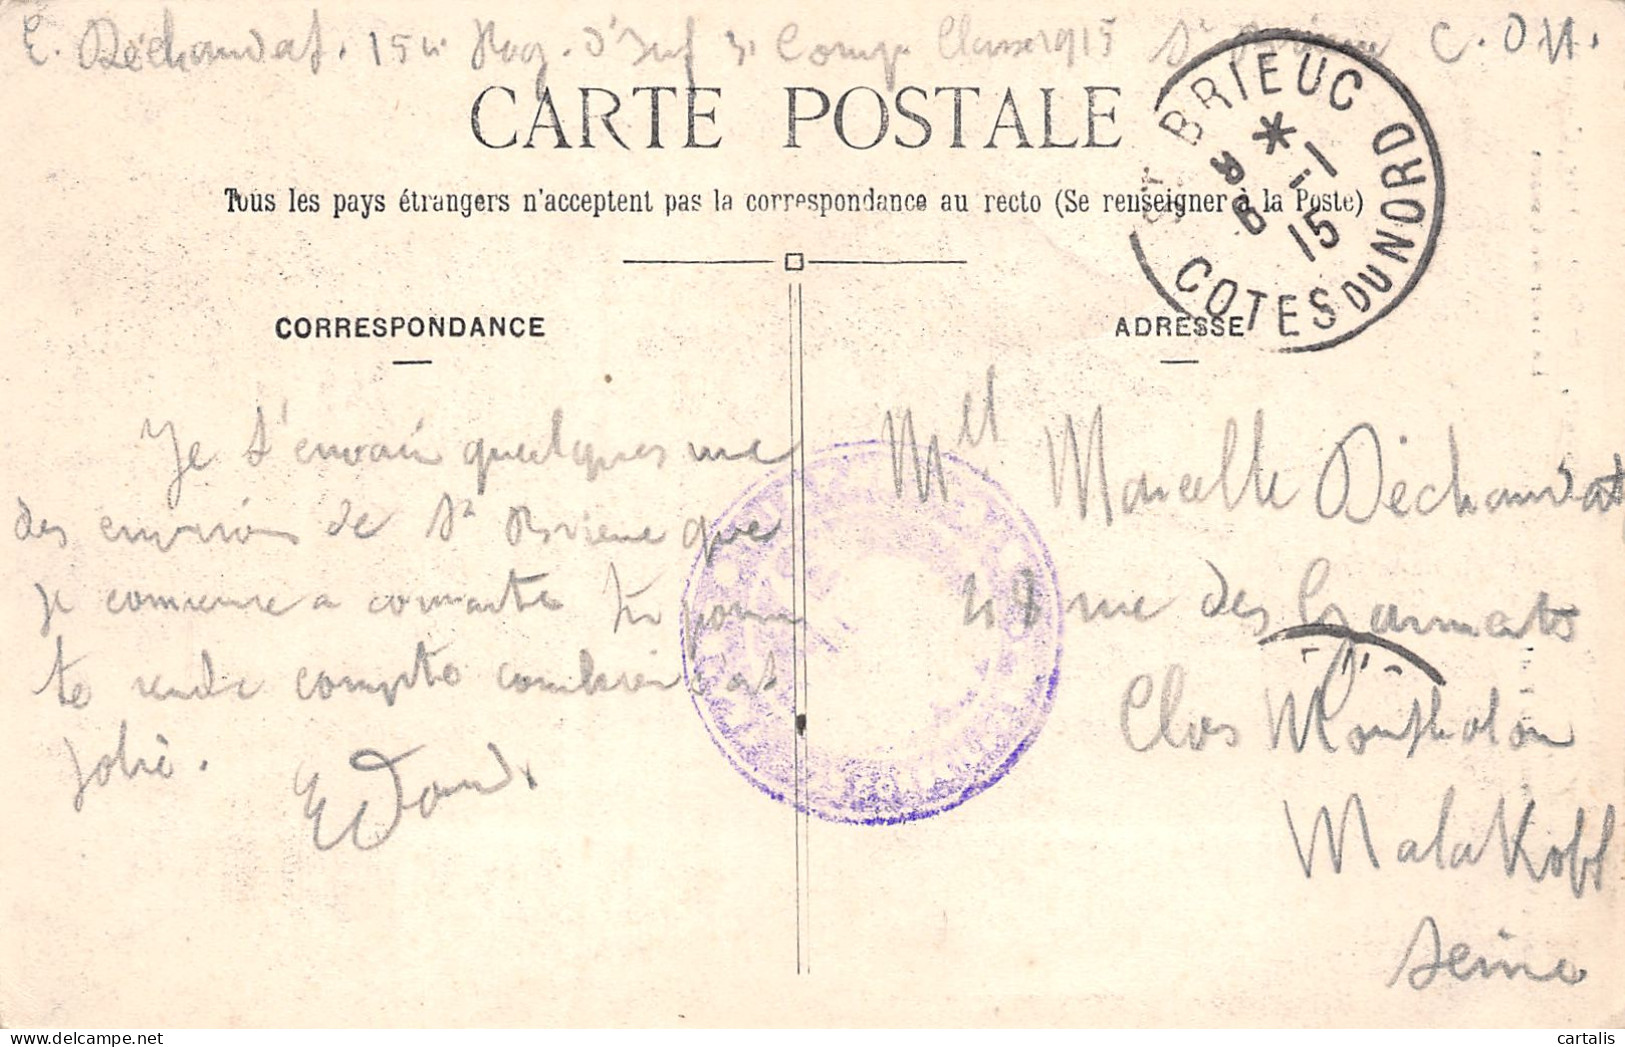 E. Déchaudat. 15 Reg. d'Inf 3 Comp Classe 1915 St Brieuc C. D N.
CARTE POSTALE
Tous les pays étrangers n'acceptent pas la correspondance au recto (Se renseigner à la Poste)
St BRIEUC
8 * 1-1
6 15
COTES DU NORD
CORRESPONDANCE
Je t'envoie quelques vue
des environs de St Brieuc que
je comence a connaitre
te rende compte combien c'est
jolie.
Edouard.
ADRESSE
Mlle Marcelle Déchaudat
48 rue des
Clos Montholon
Malakoff
Seine
cartalis